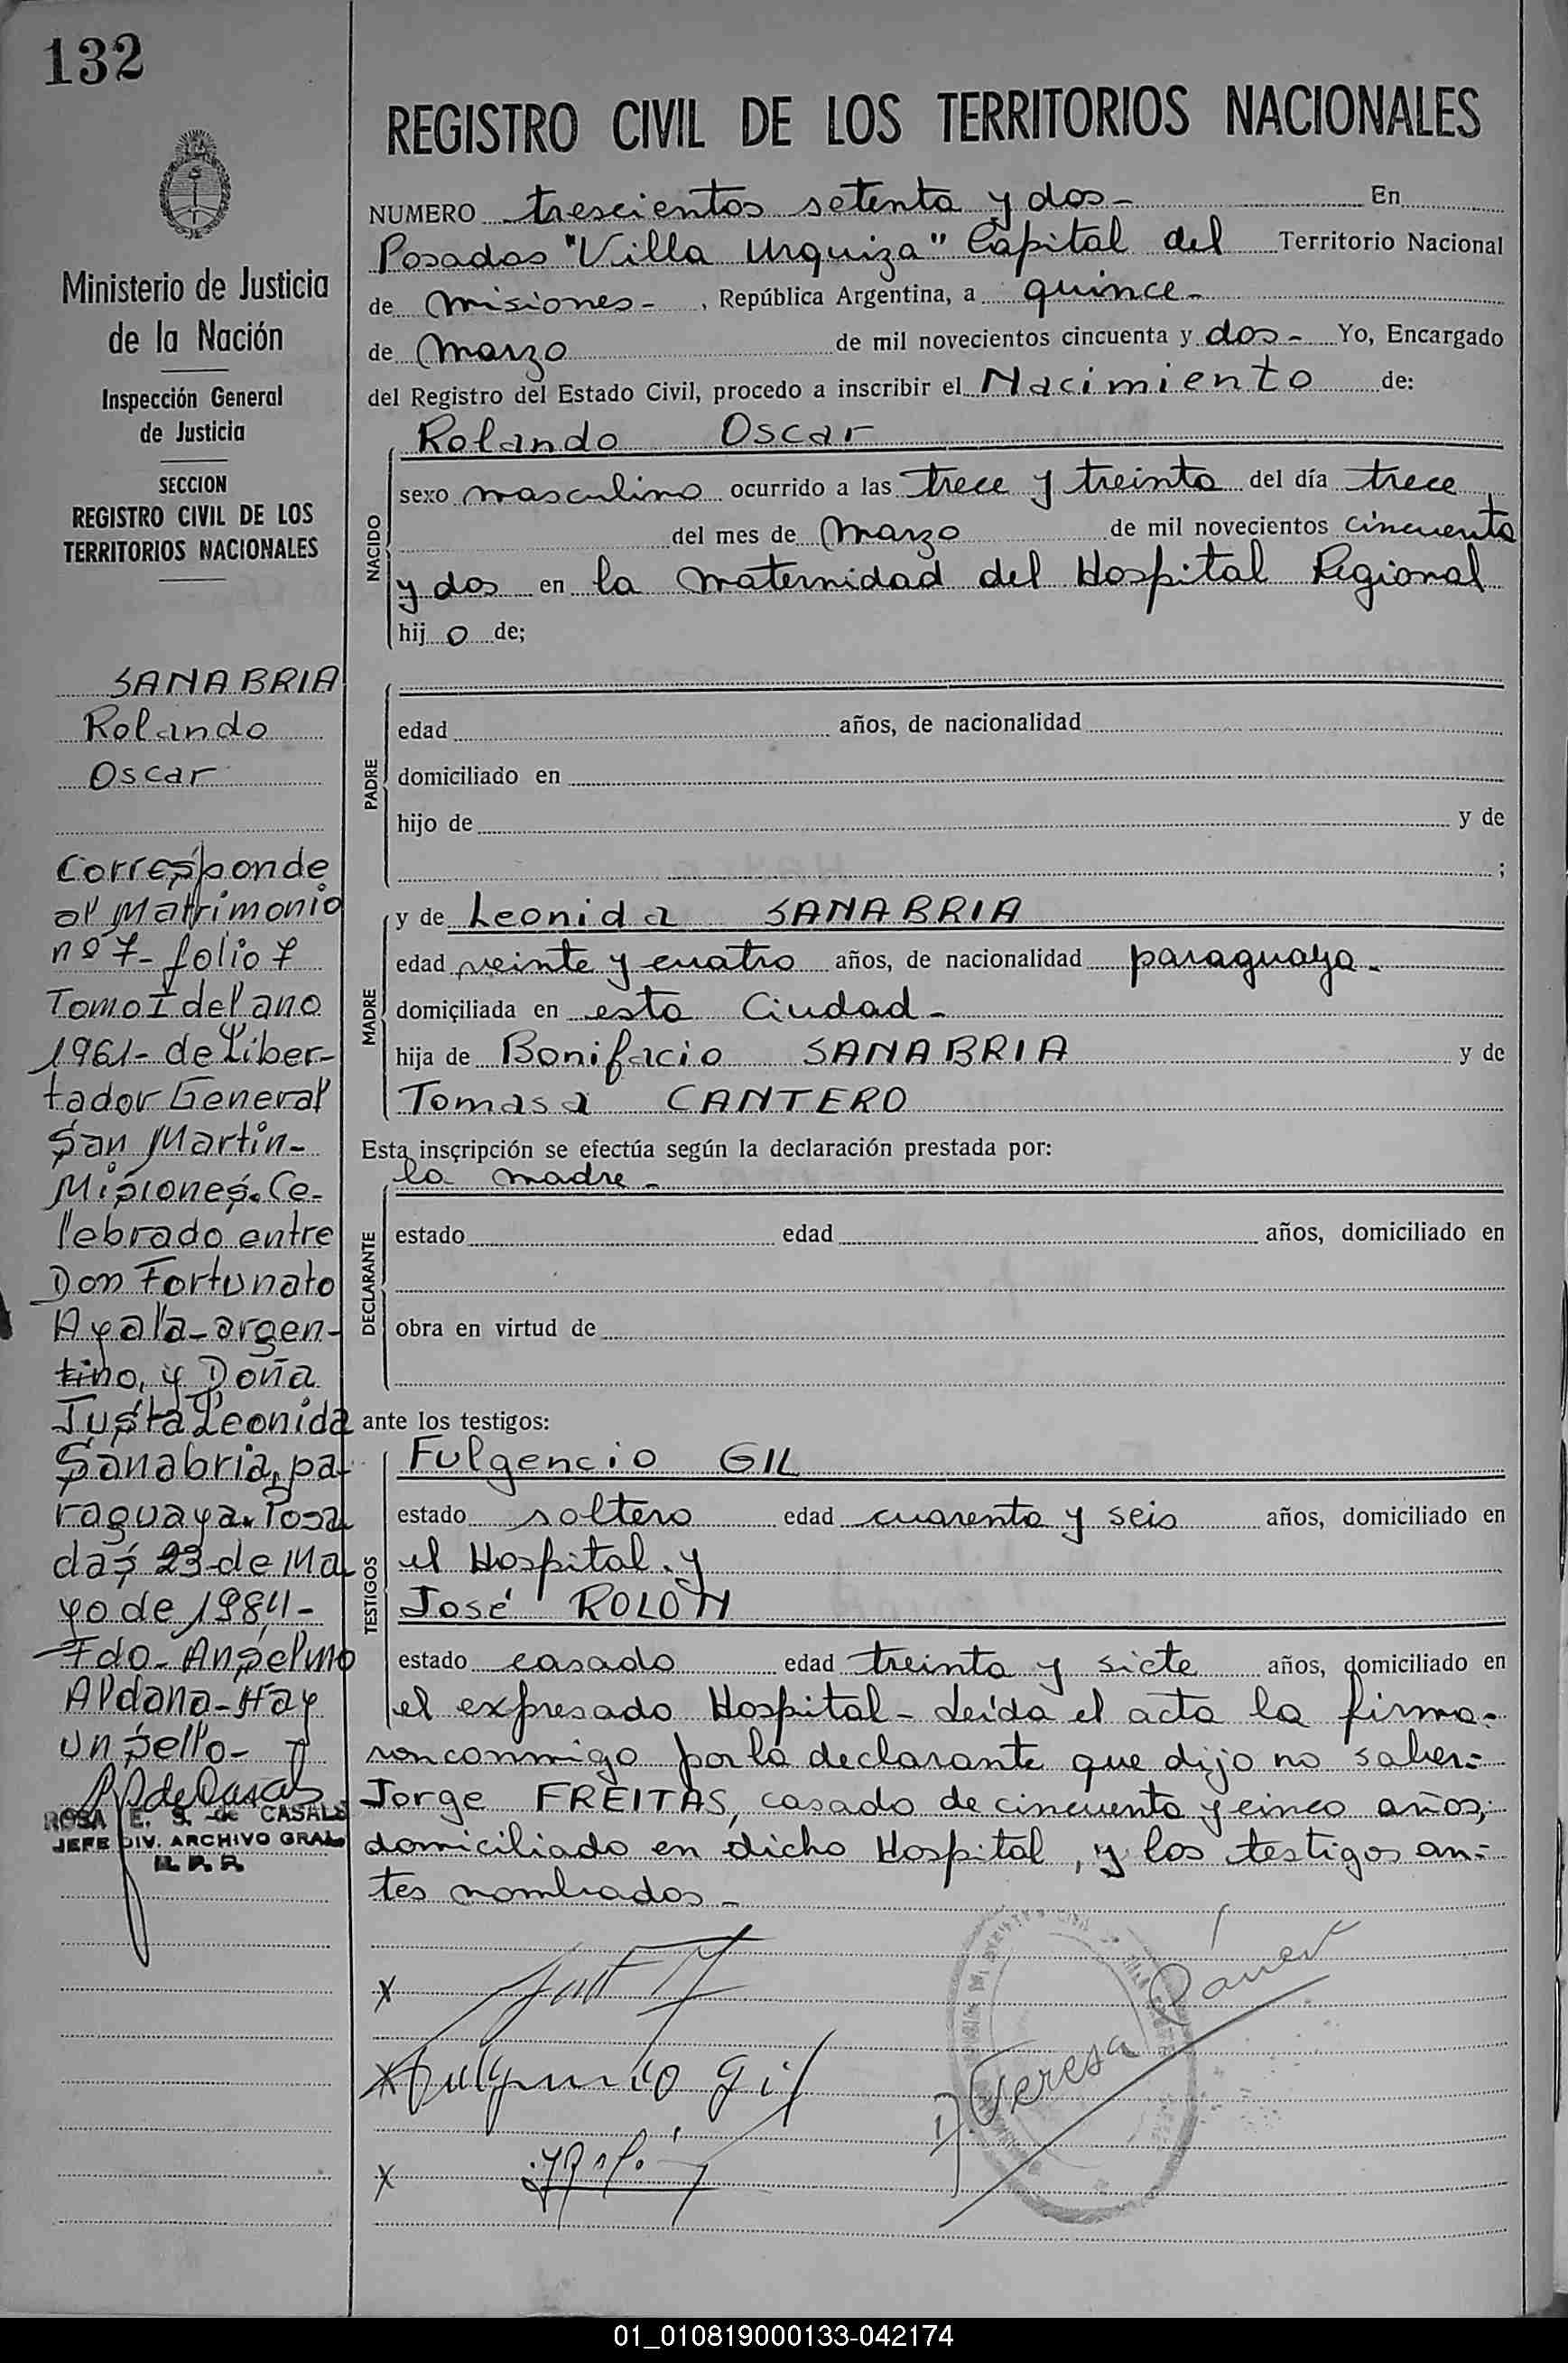 132
Ministerio de Justicia
de la Nación
Inspección General
de Justicia
SECCION
REGISTRO CIVIL DE LOS
TERRITORIOS NACIONALES
SANABRIA
Rolando
Oscar
Corresponde
al Matrimonio
nº 7- folio 7
Tomo I del ano
1961- de Liber-
tador General
San Martin-
Misiones. Ce-
lebrado entre
Don Fortunato
Ayala- argen-
tino, y Doña
Justa Leonida
Sanabria, pa-
raguaya. Posa
das 23 de Ma
yo de 1984-
Fdo- Anselmo
Aldana- Hay
un sello-
ROSA E. S. de CASALS
JEFE DIV. ARCHIVO GRAL
R. P. P.
REGISTRO CIVIL DE LOS TERRITORIOS NACIONALES
NUMERO trescientos setenta y dos- En
Posadas "Villa Urquiza" Capital del Territorio Nacional
de Misiones- , República Argentina, a quince-
de Marzo de mil novecientos cincuenta y dos- Yo, Encargado
del Registro del Estado Civil, procedo a inscribir el Nacimiento de:
Rolando Oscar
NACIDO
sexo masculino ocurrido a las trece y treinta del día trece
del mes de Marzo de mil novecientos cincuenta
y dos en la Maternidad del Hospital Regional
hij o de;
PADRE
edad años, de nacionalidad
domiciliado en
hijo de y de
;
MADRE
y de Leonida SANABRIA
edad veinte y cuatro años, de nacionalidad paraguaya-
domiciliada en esta Ciudad-
hija de Bonifacio SANABRIA y de
Tomasa CANTERO
Esta inscripción se efectúa según la declaración prestada por:
la madre-
DECLARANTE
estado edad años, domiciliado en
obra en virtud de
ante los testigos:
TESTIGOS
Fulgencio GIL
estado soltero edad cuarenta y seis años, domiciliado en
el Hospital. y
José ROLON
estado casado edad treinta y siete años, domiciliado en
el expresado Hospital- Leída el acta la firma-
ron conmigo por la declarante que dijo no saber=
Jorge FREITAS, casado de cincuenta y cinco años,
domiciliado en dicho Hospital, y los testigos an=
tes nombrados-
X
X Fulgencio Gil
X
Teresa
01_010819000133-042174